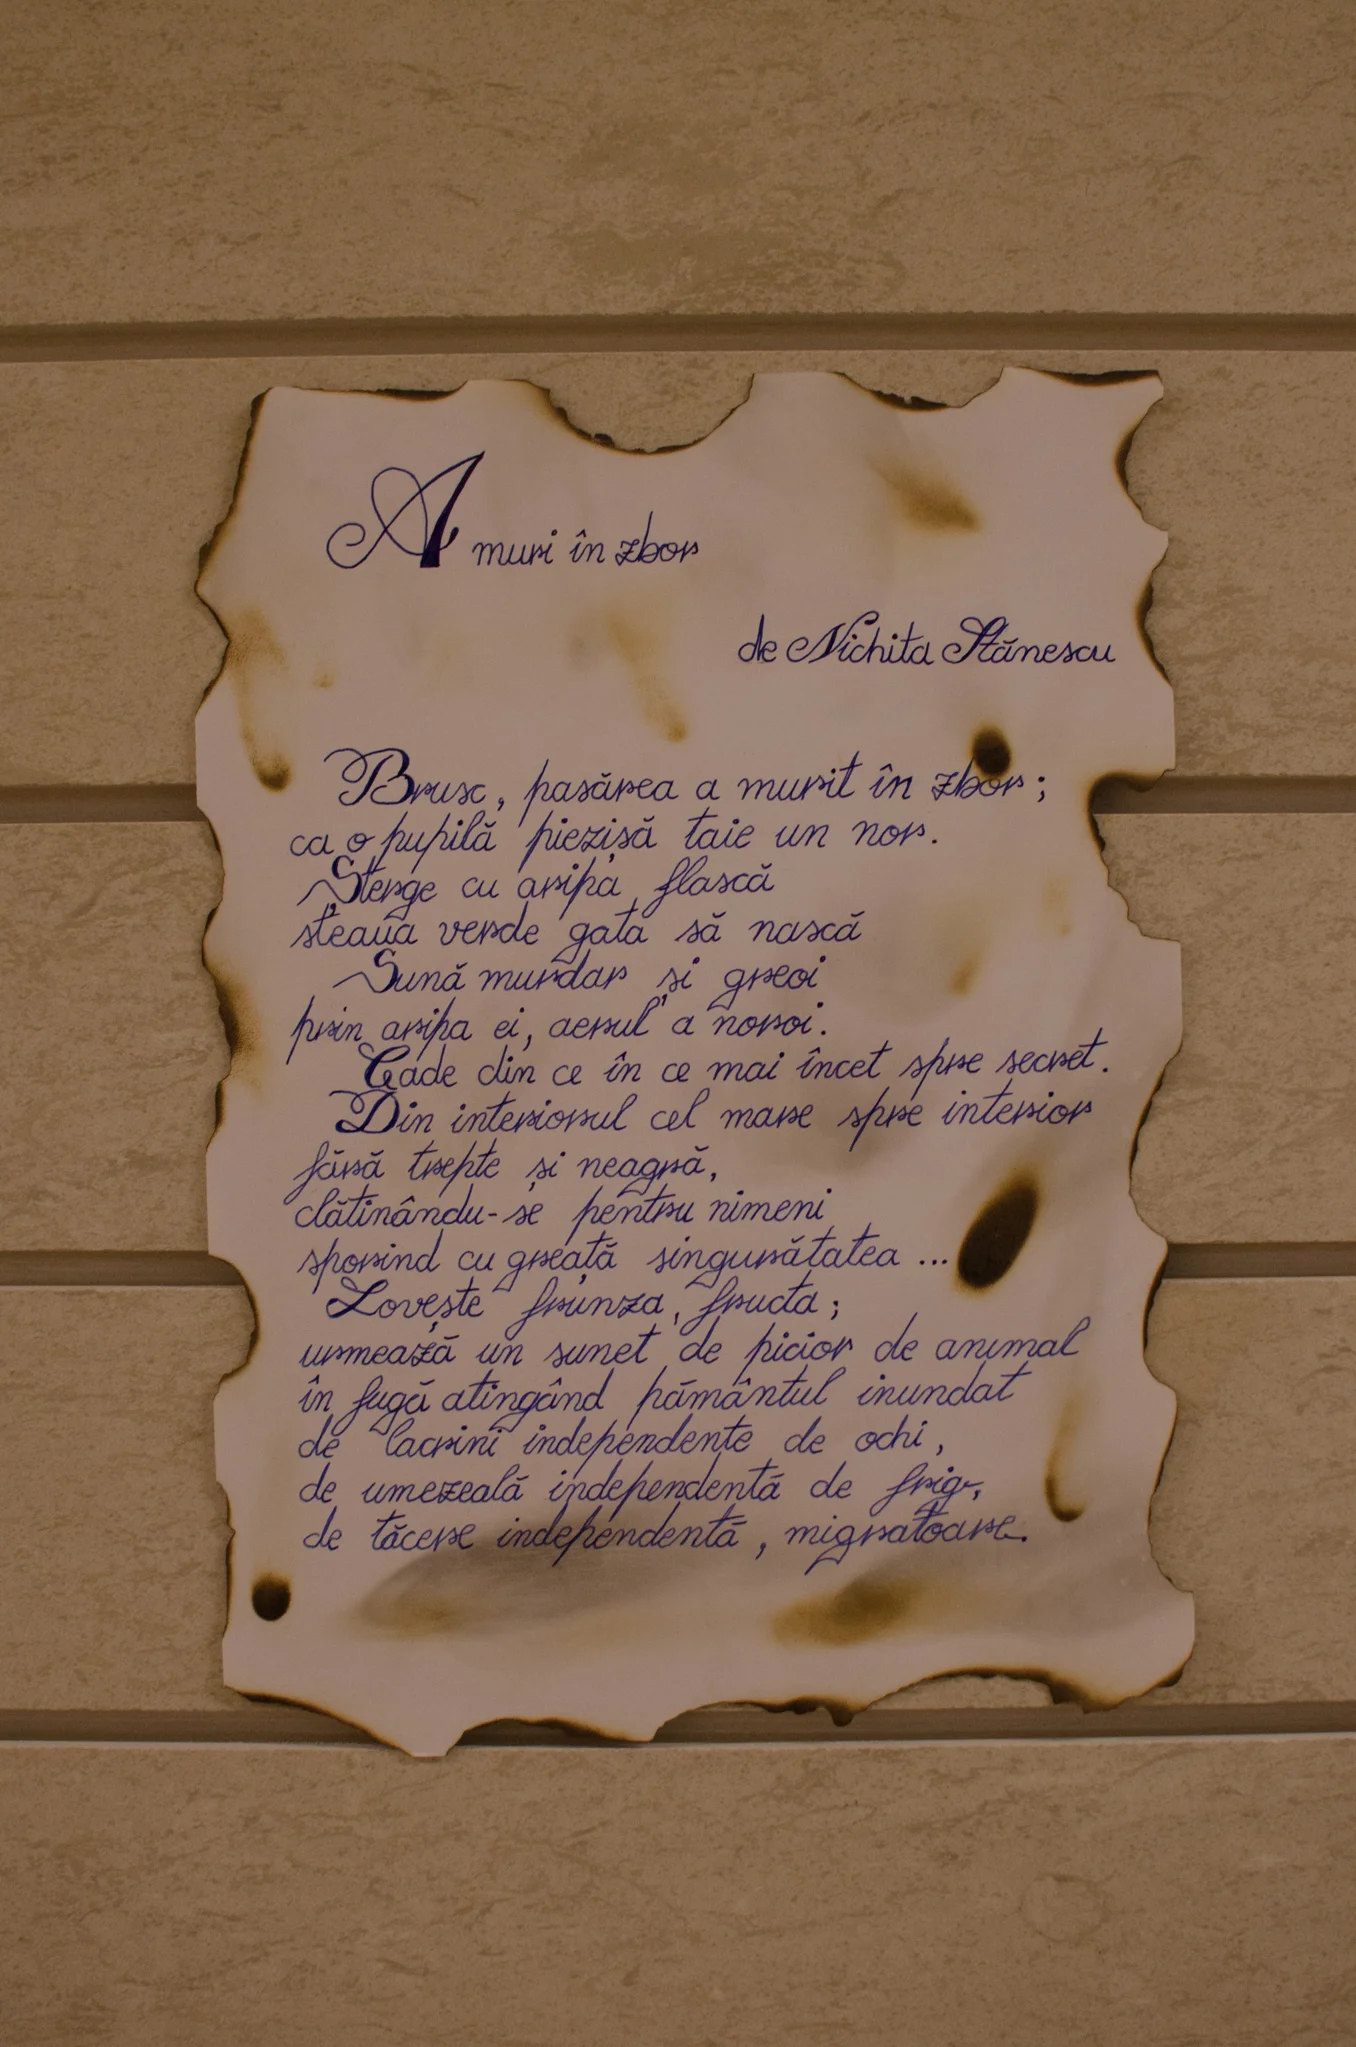 A muri în zbor
de Nichita Stănescu
Brusc, pasărea a murit în zbor;
ca o pupilă piezișă taie un nor.
Șterge cu aripa flască
steaua verde gata să nască
Sună murdar și greoi
prin aripa ei, aerul a noroi.
Cade din ce în ce mai încet spre secret.
Din interiorul cel mare spre interior
fără trepte și neagră,
clătinându-se pentru nimeni
sporind cu greață singurătatea ...
Lovește frunza, fructa;
urmează un sunet de picior de animal
în fugă atingând pământul inundat
de lacrini independente de ochi,
de umezeală independentă de frig,
de tăcere independentă, migratoare.